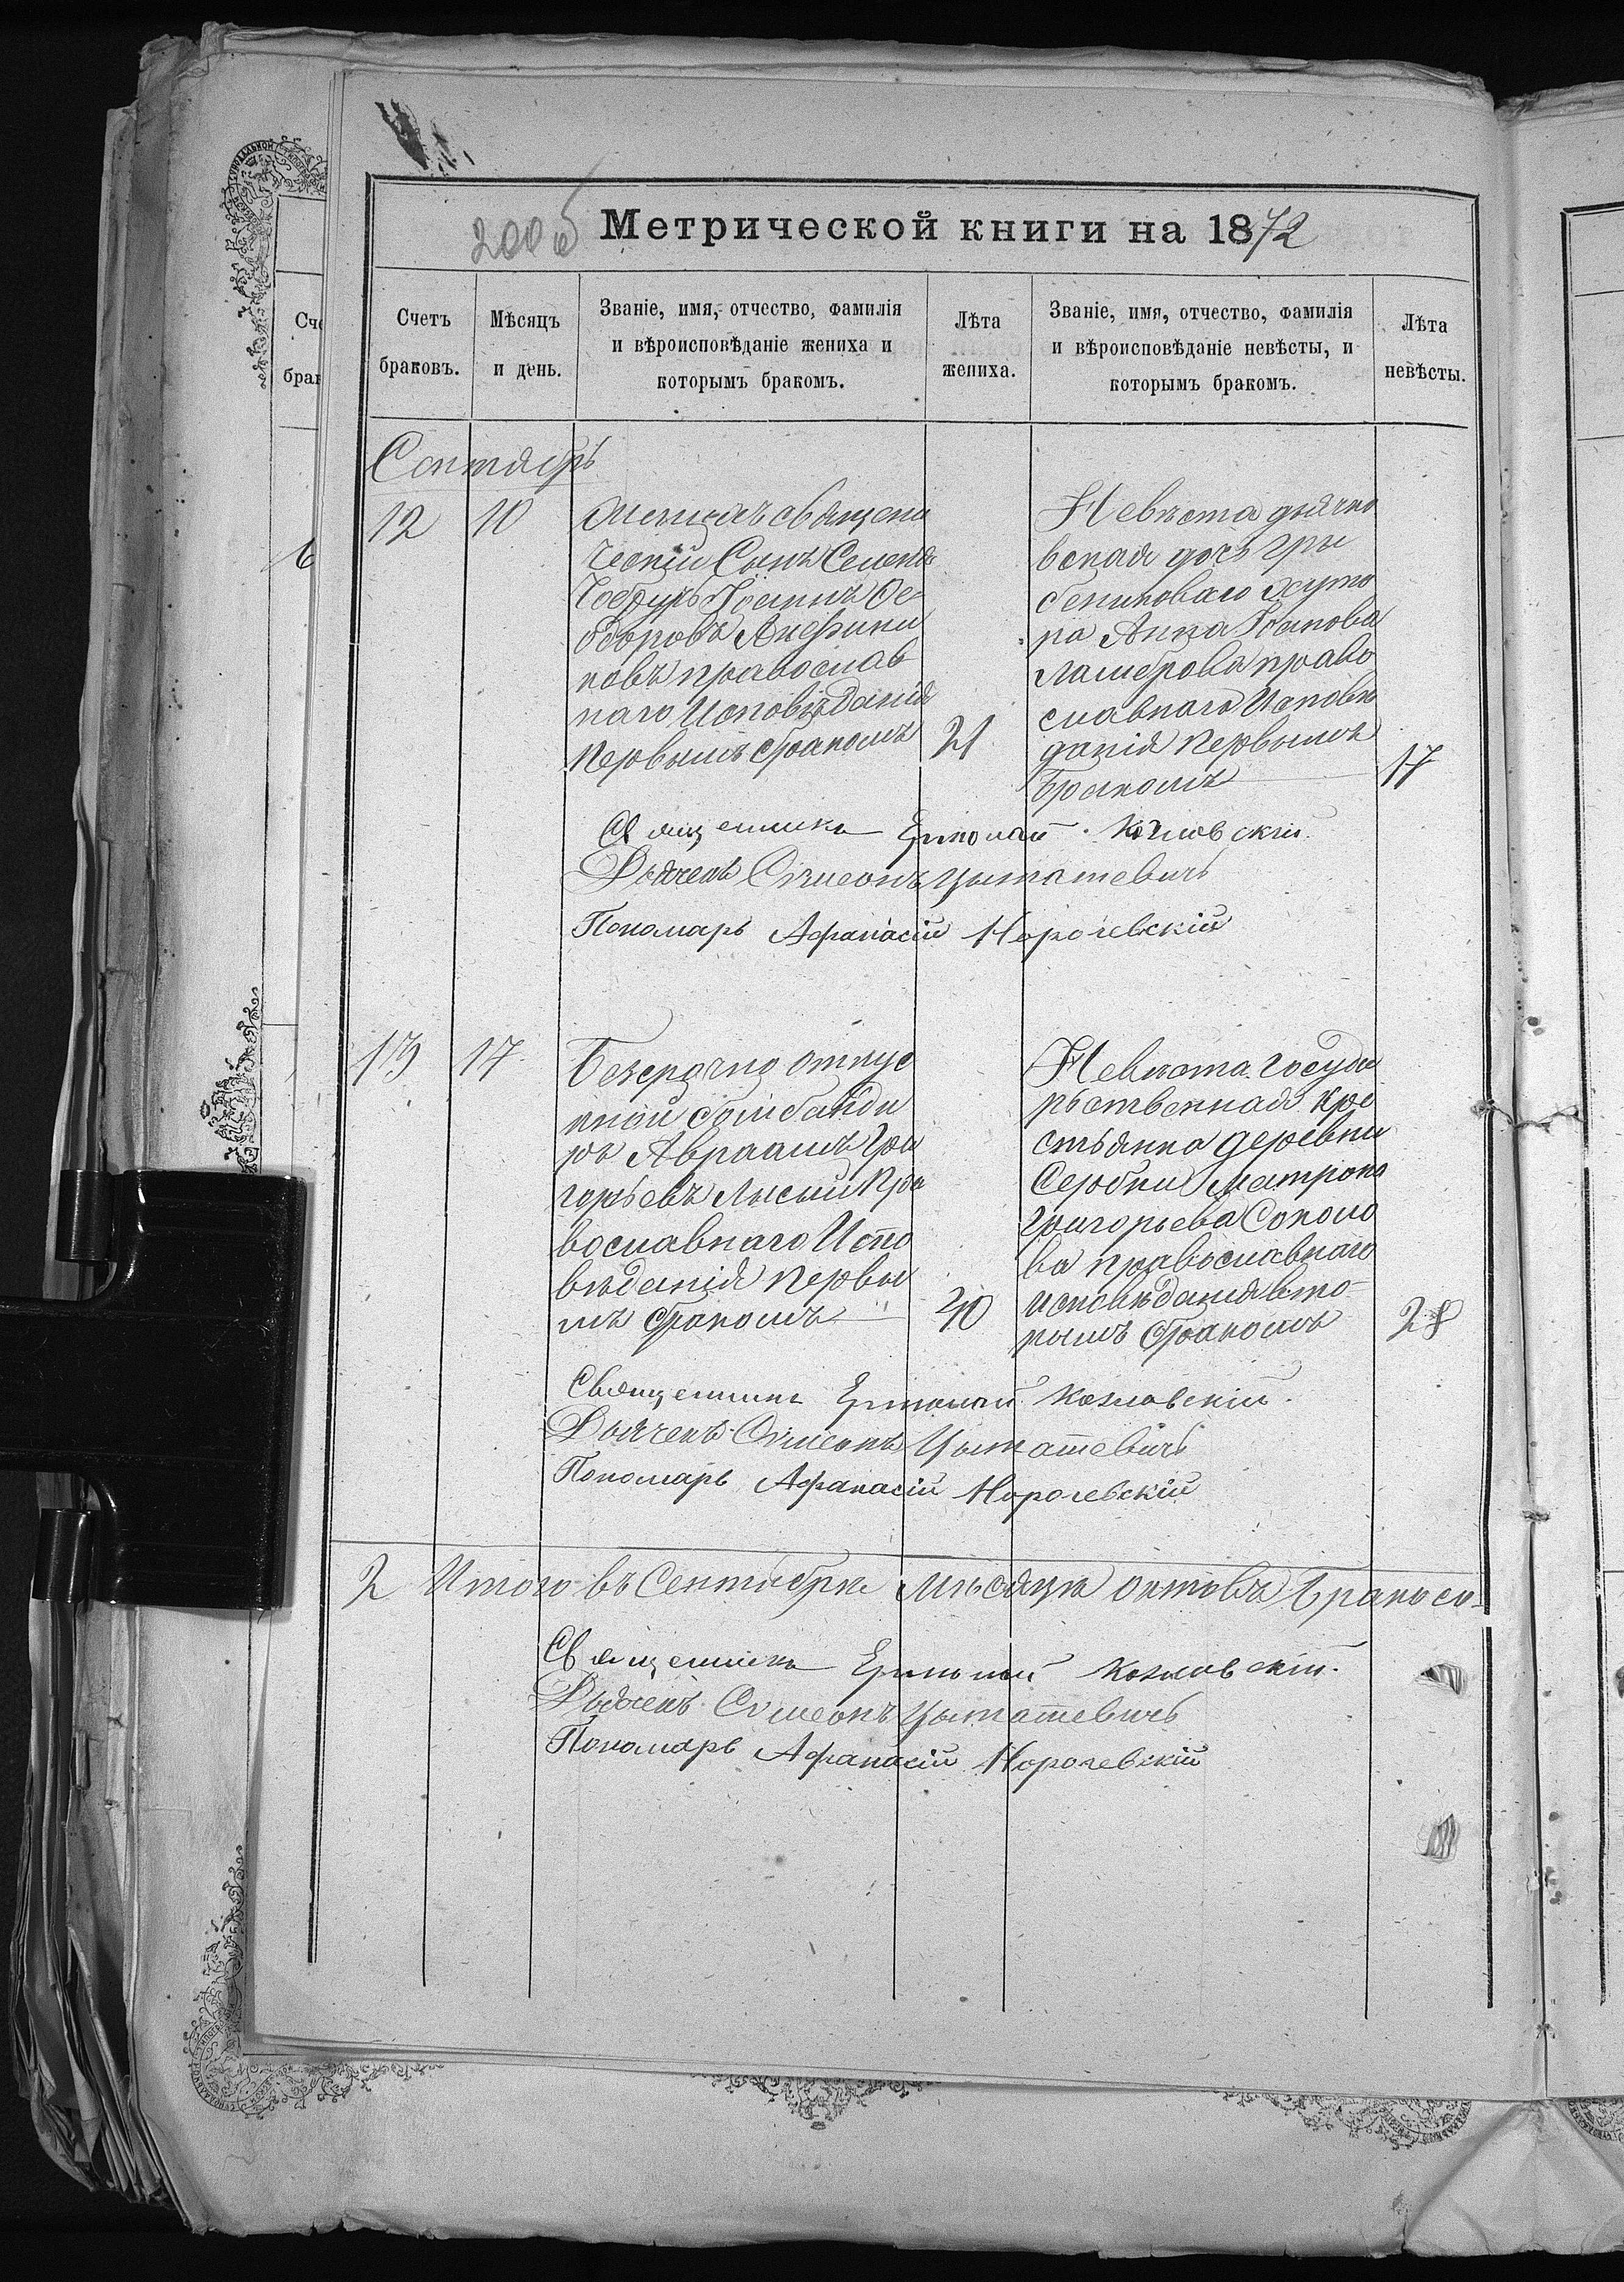 200б Метрической книги на 1872
Счетъ браковъ.
Мѣсяцъ и день.
Званіе, имя, отчество, фамилія и вѣроисповѣданіе жениха и которымъ бракомъ.
Лѣта жениха.
Званіе, имя, отчество, фамилія и вѣроисповѣданіе невѣсты, и которымъ бракомъ.
Лѣта невѣсты.
Сентябрь
12
10
священи
ческій Сынъ Селенія
Іоаннъ Ѳе-
одоровъ
новъ православ
наго Исповѣданія
Первымъ бракомъ
21
Невѣста дьячко
вская дочь Гры
бениковаго Хуто
ра Анна Іоанова
право
славнаго Исповѣ
данія Первымъ
бракомъ
17
Священникъ Ермолай Козловскій.
Дьячекъ Симеонъ
Пономарь Афанасій
13
17
Безсрочно отпус
кной бомбанди
ръ Авраамъ Гри
горьевъ Лысый Пра
вославнаго Испо
вѣданія Первы
мъ бракомъ
30
Невѣста Госуда
рьственная Кре
стьянка деревни
Сербки Матрона
Григорьева Соколо
ва православнаго
исповѣданія вто-
рымъ бракомъ
28
Священникъ Ермолай Козловскій.
Дьячекъ Симеонъ
Пономарь Афанасій
2 Итого въ Сентябрѣ Мѣсяцѣ актовъ бракосо-
Священникъ Ермолай Козловскій.
Дьячекъ Симеонъ
Пономарь Афанасій